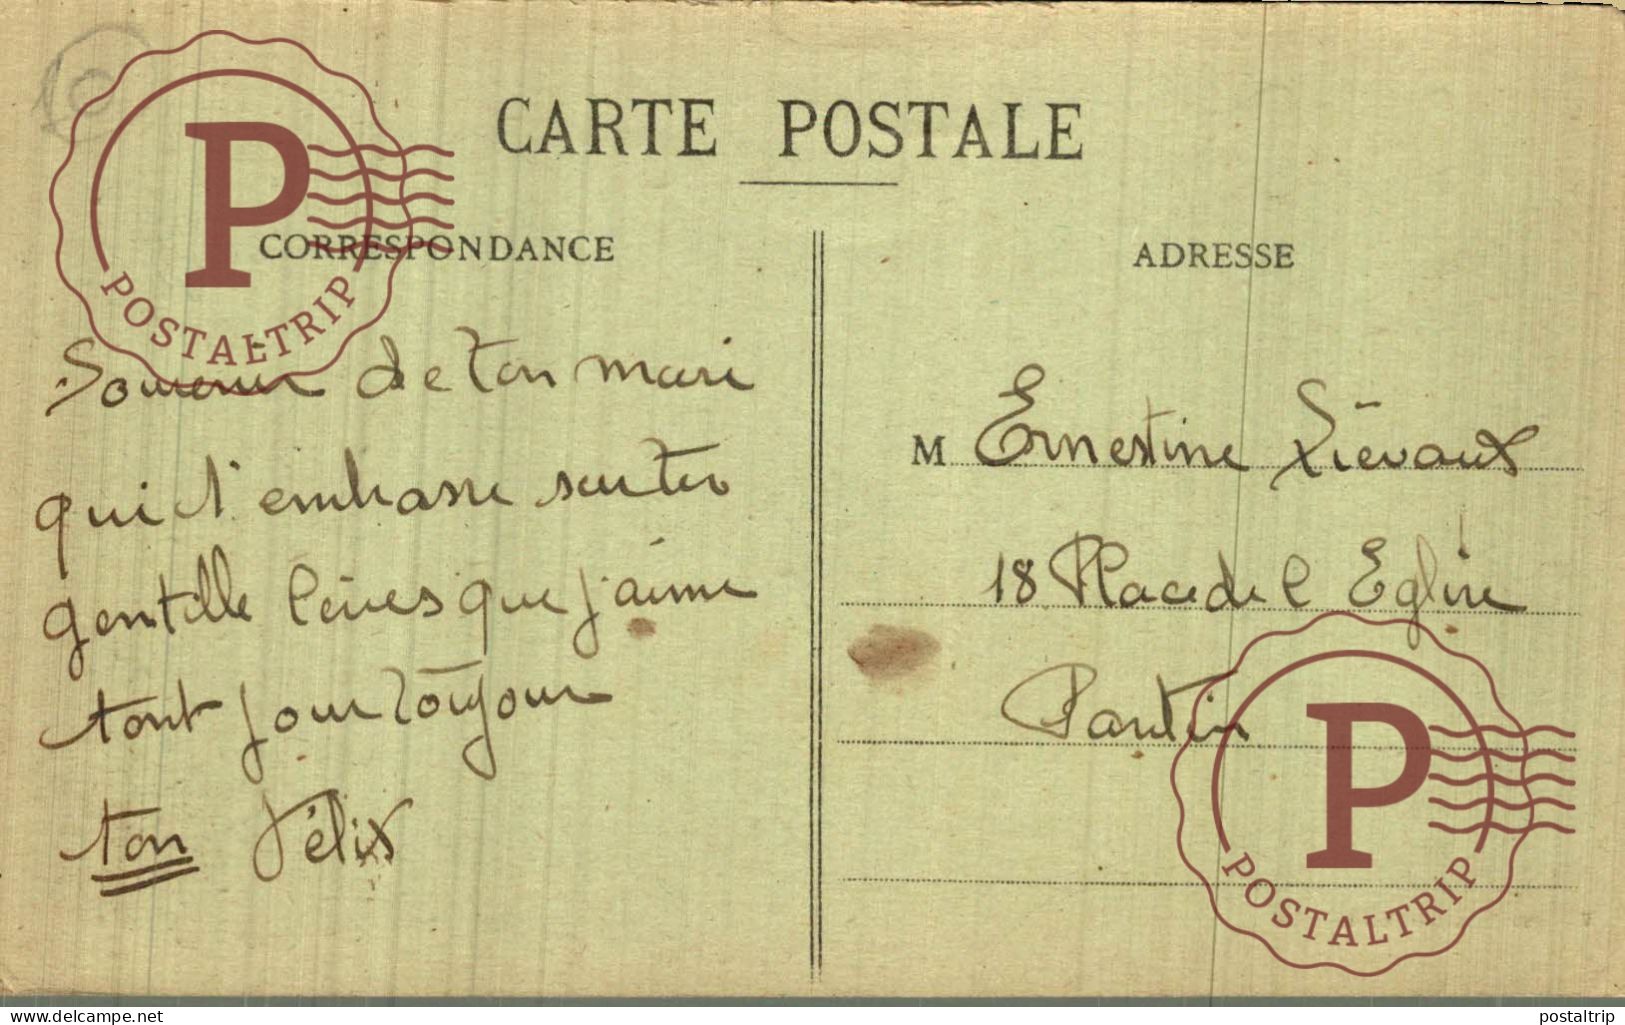 10
CARTE POSTALE
CORRESPONDANCE
ADRESSE
Souvenir de ton mari
qui t'embrasse sur tes
gentille lèvres que j'aime
tant pour toujours
ton Félix
M Ernestine Liévaux
18 Place de l Eglise
Pantin
POSTALTRIP
POSTALTRIP
www.delcampe.net
postaltrip